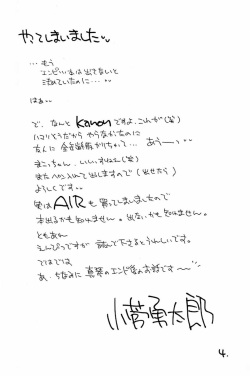 やってしまいました
…もう
エンピツ本は出せないと
決めていたのに…
はぁ
で、なんと Kanon ですよ、これが(笑)
ハマりそうだから やらなかったのに
あうーっ
まこっちゃん、いいっすねぇ(笑)
また入れて出しますので(出せたら)
よろしくです
実は AIR も買ってしまいましたので
本出るかも知れません。出ないかも知れません。
ともあれ
えんぴつですが 読んで下さるとうれしいです。
ではでは
あ、ちなみに 真琴のエンド後のお話です〜
小菅勇太郎
4.